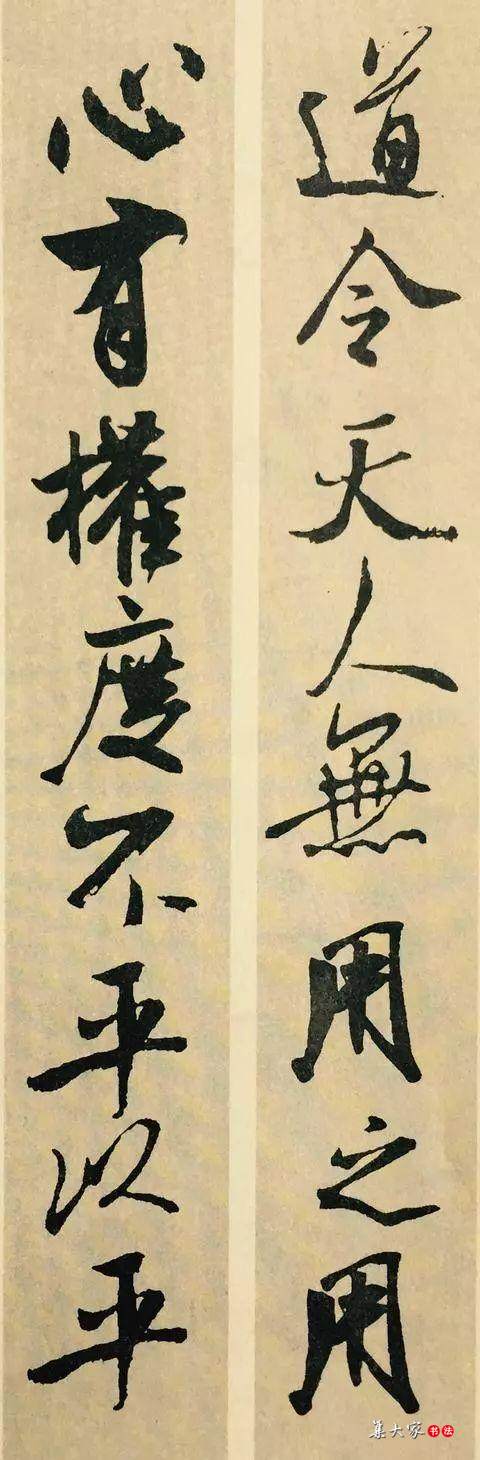 道令天人無用之用
心有權度不平以平
集大家书法